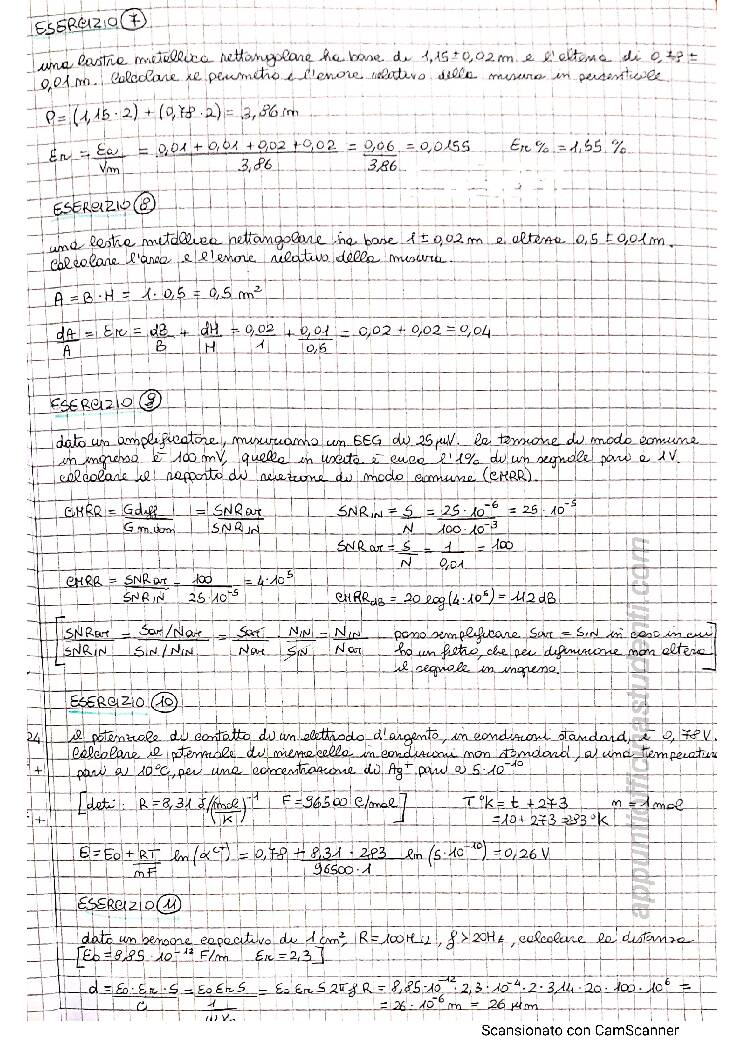 ESERCIZIO 7
una lastra metallica rettangolare ha base di 1,15 ± 0,02 m e l'altezza di 0,78 ±
0,01 m. Calcolare il perimetro e l'errore relativo della misura in percentuale
P = (1,15 · 2) + (0,78 · 2) = 3,86 m
Er = Ea/Vm = (0,01 + 0,01 + 0,02 + 0,02)/3,86 = 0,06/3,86 = 0,0155 Er % = 1,55 %
ESERCIZIO 8
una lastra metallica rettangolare ha base 1 ± 0,02 m e altezza 0,5 ± 0,01 m.
Calcolare l'area e l'errore relativo della misura.
A = B · H = 1 · 0,5 = 0,5 m²
dA/A = Er = dB/B + dH/H = 0,02/1 + 0,01/0,5 = 0,02 + 0,02 = 0,04
ESERCIZIO 9
dato un amplificatore, misuriamo un EEG di 25 μV. la tensione di modo comune
in ingresso è 100 mV, quella in uscita è circa l'1% di un segnale pari a 1V.
calcolare il rapporto di reiezione di modo comune (CMRR).
CMRR = Gdiff/Gm.com = SNRout/SNRIN SNRIN = S/N = 25 · 10⁻⁶/100 · 10⁻³ = 25 · 10⁻⁵
SNRout = S/N = 1/0,01 = 100
CMRR = SNRout/SNRIN = 100/25 · 10⁻⁵ = 4 · 10⁵ CMRRdB = 20 log(4 · 10⁵) = 112 dB
[SNRout/SNRIN = Sout/Nout/SIN/NIN = Sout/Nout NIN/SIN = NIN/Nout posso semplificare Sout = SIN in caso in cui
ho un filtro, che per definizione non altera
il segnale in ingresso.]
ESERCIZIO 10
il potenziale di contatto di un elettrodo d'argento, in condizioni standard, è 0,78 V.
24
Calcolare il potenziale di mezzacella in condizioni non standard, a una temperatura
+
pari a 10°C, per una concentrazione di Ag⁺ pari a 5 · 10⁻¹⁰
[dati: R = 8,31 J/(mol/K)⁻¹ F = 96500 C/mol] T°K = t + 273 n = 1 mol
+
= 10 + 273 = 283 °K
E = E0 + RT/mF ln(αC⁺) = 0,78 + 8,31 · 283/96500 · 1 ln(5 · 10⁻¹⁰) = 0,26 V
ESERCIZIO 11
dato un sensore capacitivo di 1 cm², R = 100 MΩ, f > 20Hz, calcolare la distanza
[E0 = 8,85 · 10⁻¹² F/m Er = 2,3]
d = E0 · Er · S/C = E0 Er S/1 = E0 Er S 2π f R = 8,85 · 10⁻¹² · 2,3 · 10⁻⁴ · 2 · 3,14 · 20 · 100 · 10⁶ =
= 26 · 10⁻⁶ m = 26 μm
appuntiofficinastudenti.com
Scansionato con CamScanner